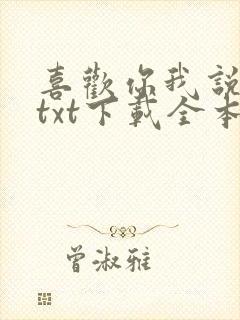 喜歡你我說
txt下載全本
曾淑雅